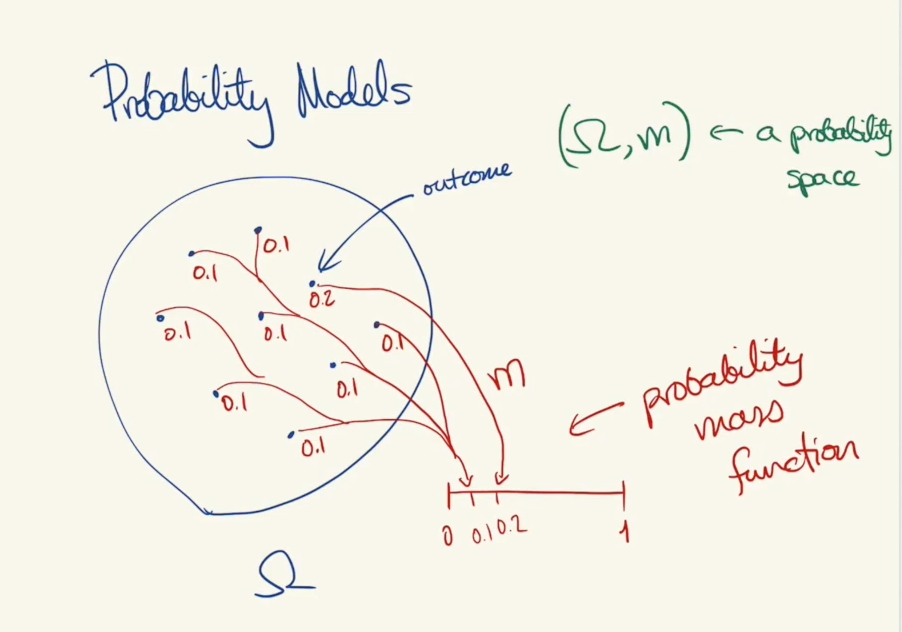 Probability Models
(Ω, m) ← a probability
space
outcome
0.1
0.1
0.2
0.1
0.1
0.1
0.1
0.1
0.1
m
probability
mass
function
0 0.1 0.2 1
Ω